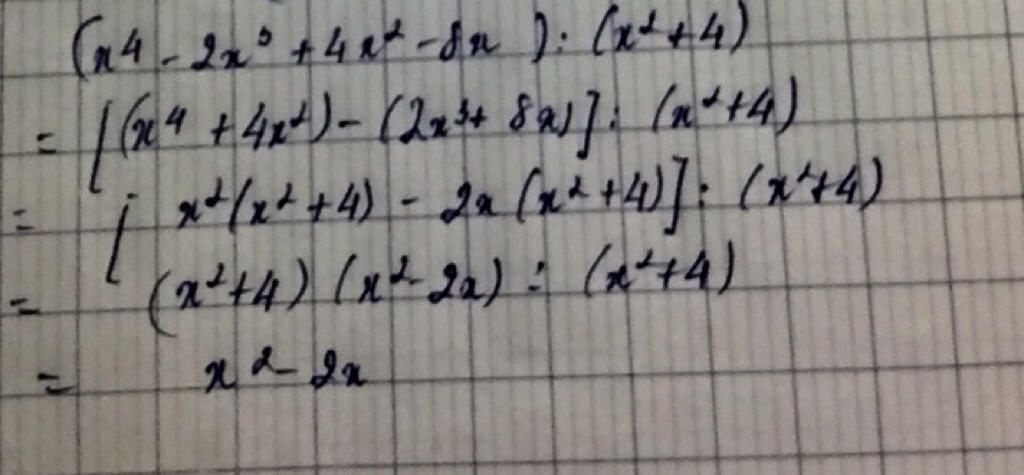 (x⁴ - 2x³ + 4x² - 8x ) : (x² + 4)
= [(x⁴ + 4x²) - (2x³ + 8x)] : (x² + 4)
= [ x²(x² + 4) - 2x (x² + 4)] : (x² + 4)
= (x² + 4) (x² - 2x) : (x² + 4)
= x² - 2x